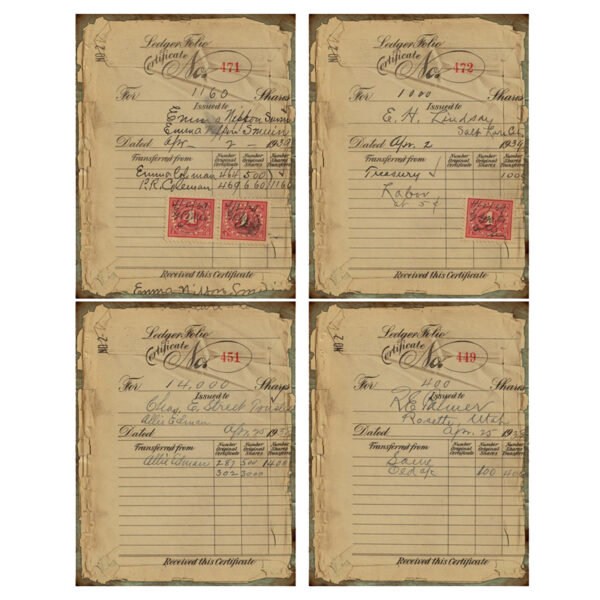 NO-2-
Ledger Folio
Certificate No. 471
For 1160 Shares
Issued to
Emma Nipson
Emma
Dated Apr 2 - 1939
Transferred from
Number Original Certificate
Number Original Shares
Number Shares Transferred
Emma Coleman 464 500
P.R. Coleman 469 660 1160
Received this Certificate
Emma
NO-2-
Ledger Folio
Certificate No. 472
For 1000 Shares
Issued to
E. H. Lindsay
Salt Lake
Dated Apr. 2 1939
Transferred from
Number Original Certificate
Number Original Shares
Number Shares Transferred
Treasury 1000
Labor
at 5¢
Received this Certificate
NO-2-
Ledger Folio
Certificate No. 451
For 14,000 Shares
Issued to
Chas. E. Street
Allie Edman
Dated Apr. 25 1938
Transferred from
Number Original Certificate
Number Original Shares
Number Shares Transferred
Allie Edman 287 14000
302 3000
Received this Certificate
NO-2-
Ledger Folio
Certificate No. 449
For 400 Shares
Issued to
R. E. Palmer
Rosette, Utah
Dated Apr. 25 1938
Transferred from
Number Original Certificate
Number Original Shares
Number Shares Transferred
Same
Old 100 400
Received this Certificate